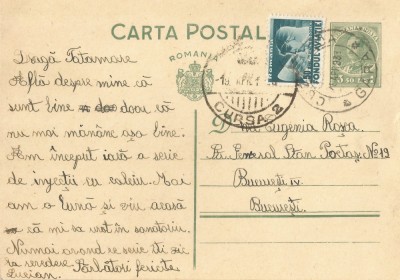 CARTA POSTALĂ
ROMANIA
FONDUL AVIAȚIEI
CURSA 2
GARA
Dragă
Află despre mine că
sunt bine doar că
nu mai mănânc așa bine.
Am început iată o serie
de injecții cu calciu. Mai
am o lună și viu acasă
că mi sa urât în sanatoriu.
Numai când scrie îți zic
la revedere. Sărbători fericite
Lucian.
D Eugenia Roșca
Str. General Stan Poetaș No 19
București IV.
București.